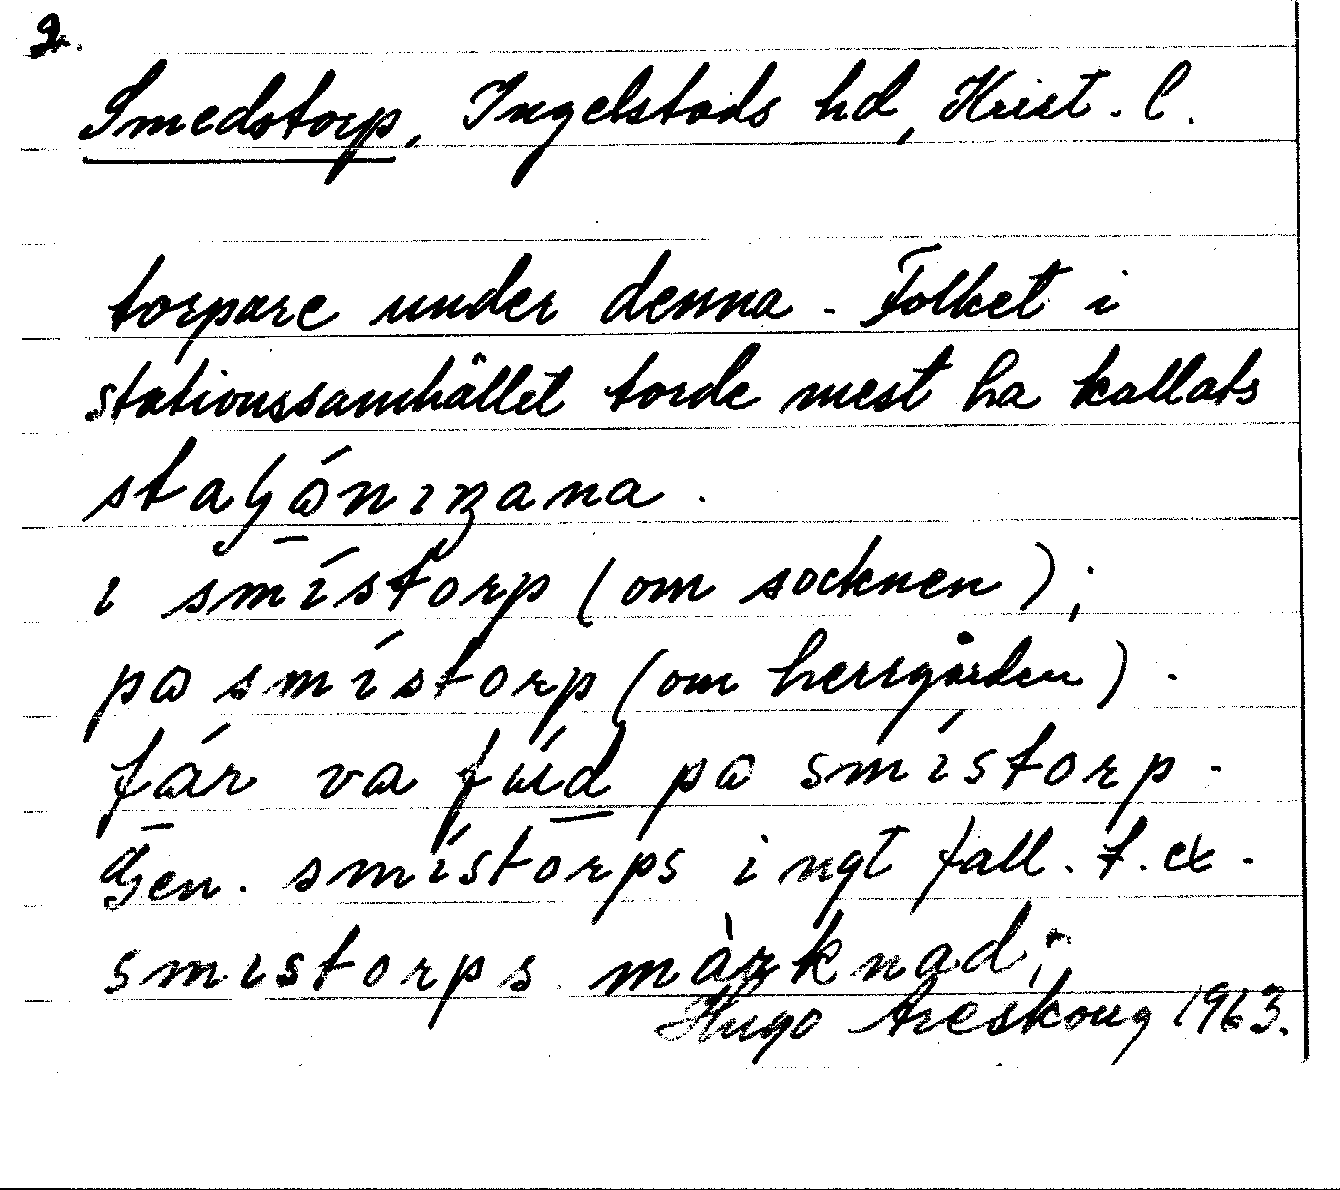 2.
Smedstorp, Ingelstads hd, Krist. l.
torpare under denna. Folket i
stationssamhället torde mest ha kallats
i smístorp (om socknen);
pɷ smístorp (om herrgården).
fár va fúd pɷ smístorp.
Gen. smístorps i ngt fall. t.ex.
smistorps màrknad;
Hugo Areskoug 1963.